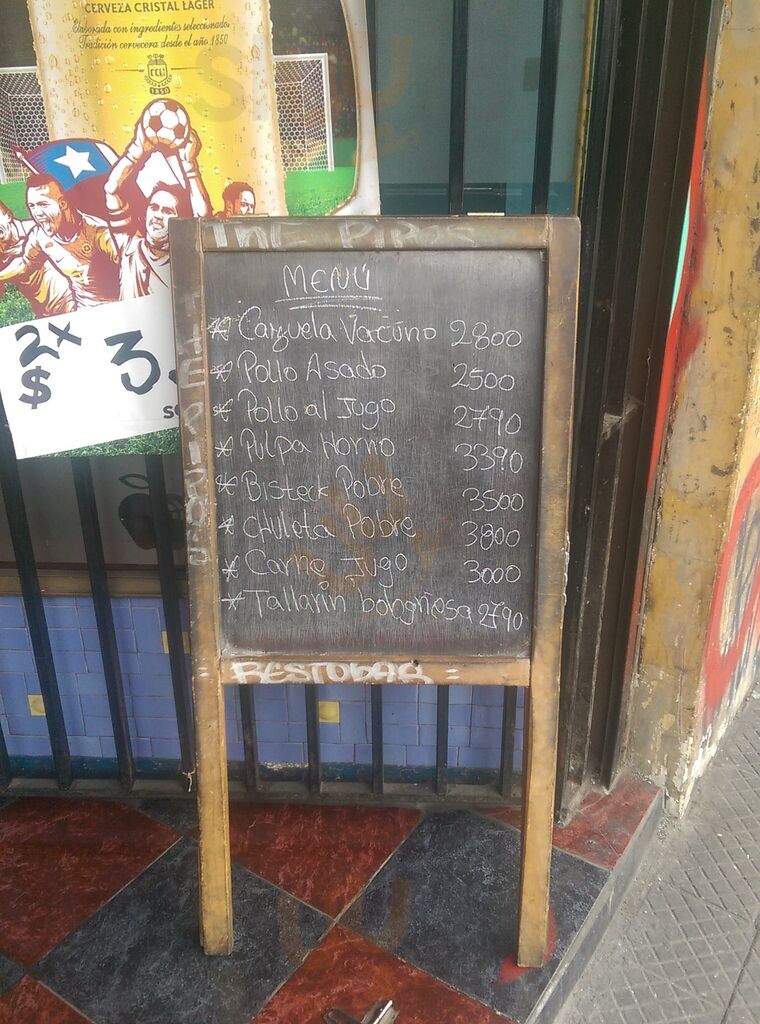 CERVEZA CRISTAL LAGER
Elaborada con ingredientes seleccionados
Tradición cervecera desde el año 1850
CCU
1850
2x
$ 3
THE PIPOS
THE PIPOS
MENÚ
* Cazuela Vacuno 2800
* Pollo Asado 2500
* Pollo al Jugo 2790
* Pulpa Horno 3390
* Bisteck Pobre 3500
* Chuleta Pobre 3800
* Carne Jugo 3000
* Tallarin bolognesa 2790
= RESTOBAR =